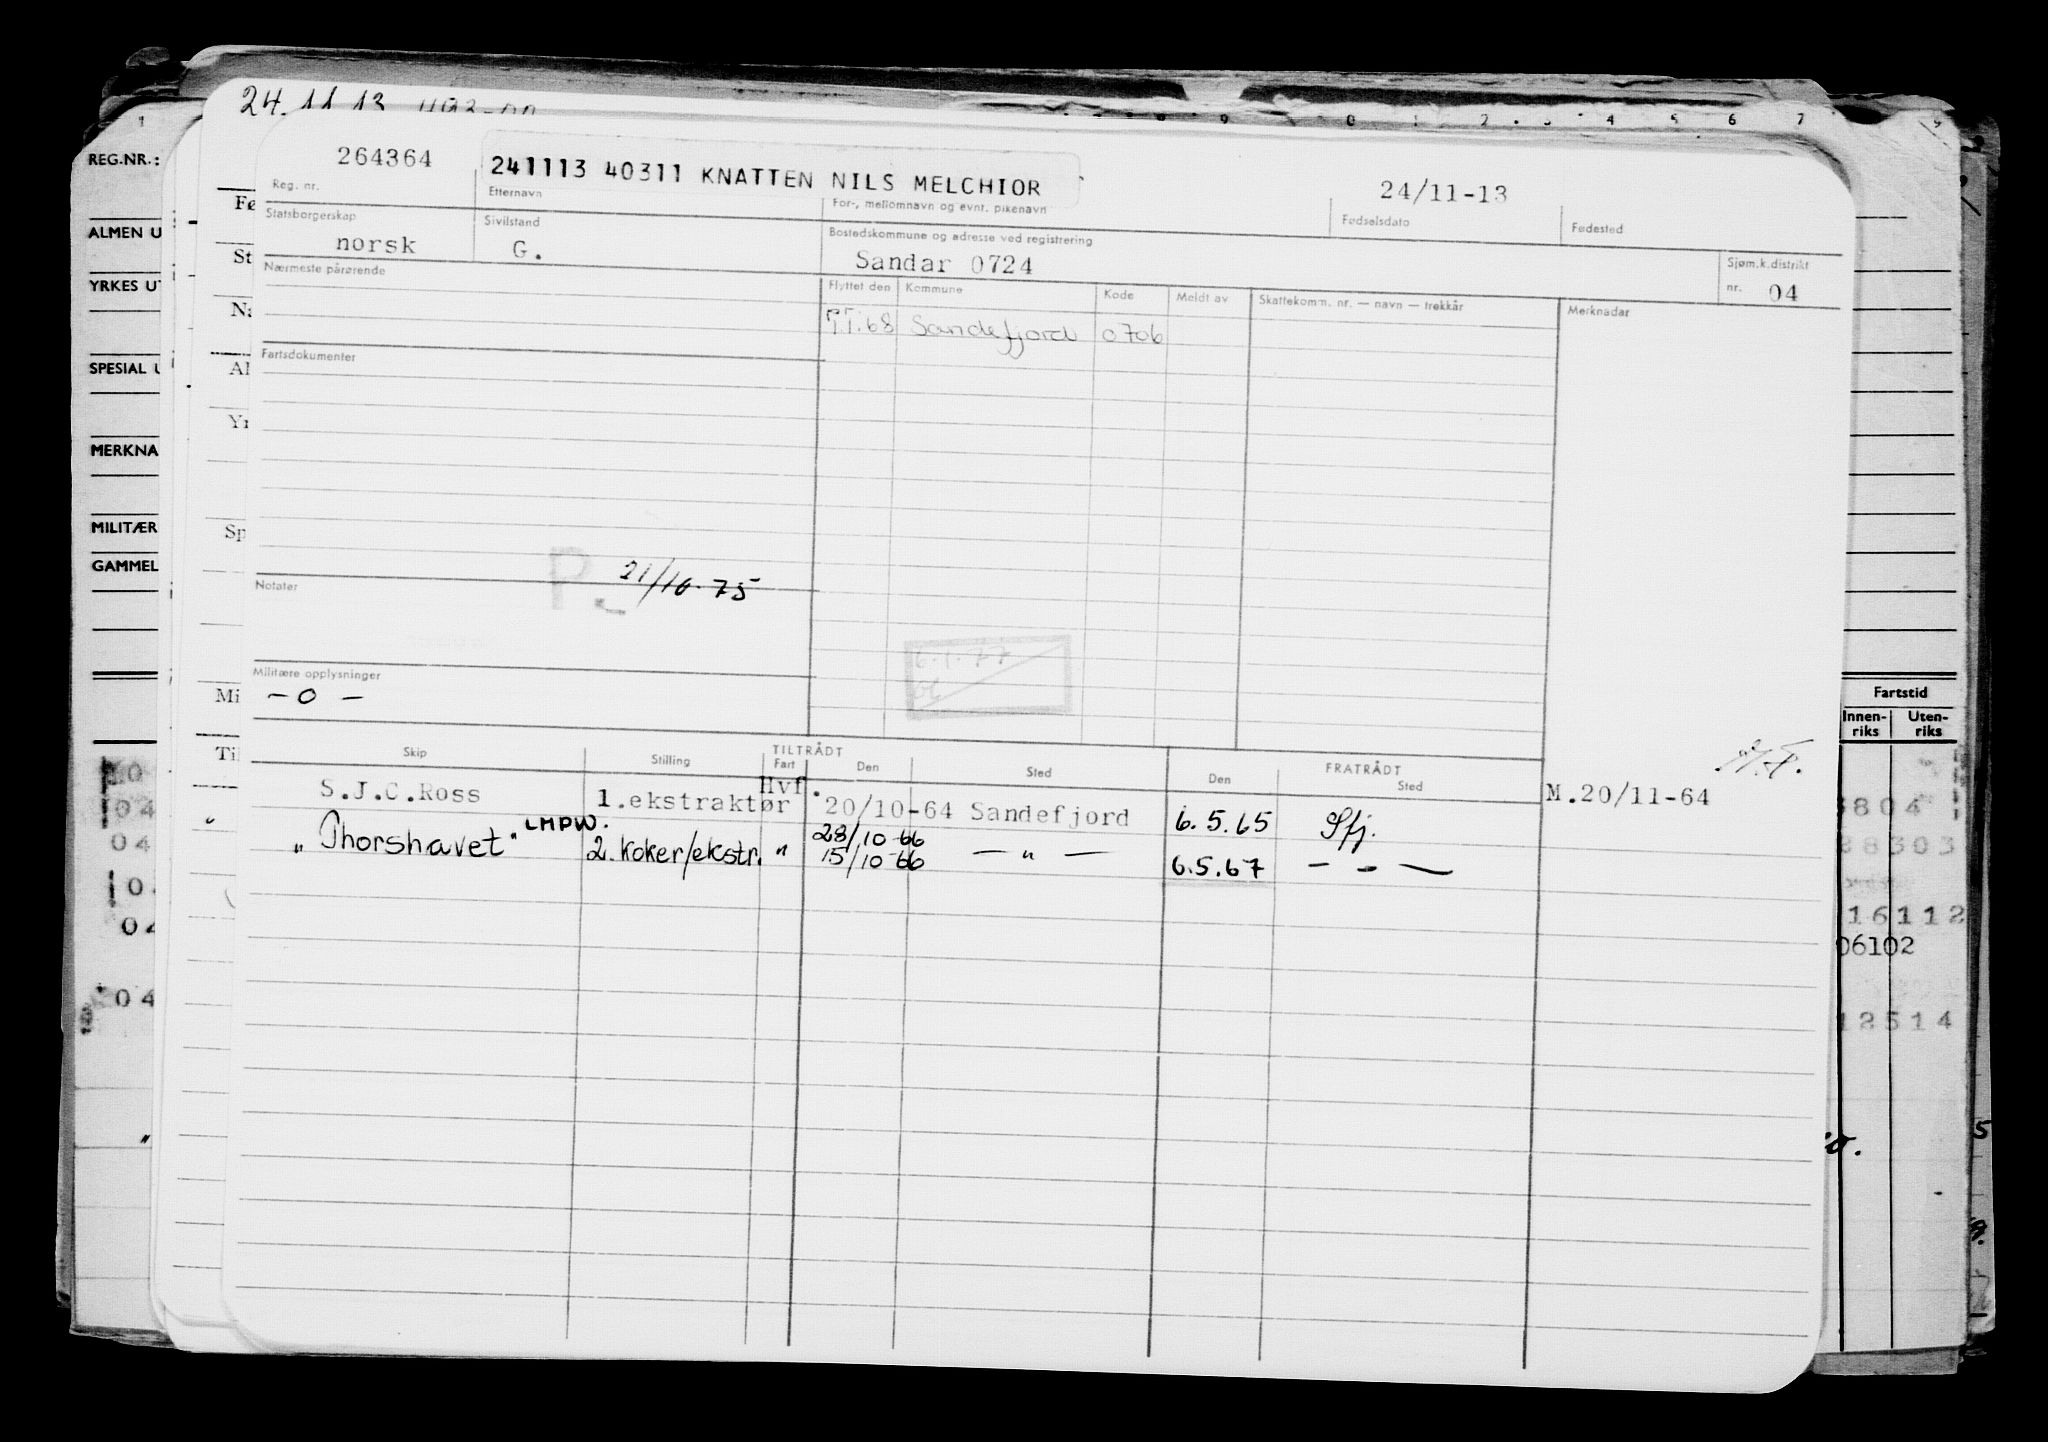 24.11.13
REG.NR.:
264364
241113 40311 KNATTEN NILS MELCHIOR
24/11-13
Reg. nr.
Etternavn
For-, mellomnavn og evnt. pikenavn
Fødselsdato
Fødested
Statsborgerskap
norsk
Sivilstand
G.
Bostedskommune og adresse ved registrering
Sandar 0724
Sjøm.k.distrikt
nr. 04
Nærmeste pårørende
Flyttet den
Kommune
Kode
Meldt av
Skattekomm. nr. — navn — trekkår
Merknader
1.1.68 Sandefjord 0706
Fartsdokumenter
P.
21/10-75
Notater
6.1.77
Militære opplysninger
— 0 —
TILTRÅDT
FRATRÅDT
Skip
Stilling
Fart
Den
Sted
Den
Sted
S.J.C.Ross 1.ekstraktør Hvf. 20/10-64 Sandefjord 6.5.65 Sfj. M.20/11-64
"Thorshavet" LMPW. 2. koker/ekstr. " 28/10-66 — " — 6.5.67 — " —
15/10-66
ALMEN U
YRKES UT
SPESIAL U
MERKNA
MILITÆR
GAMMEL
Fø
St
Na
Al
Yr
Sp
Mi
Ti
Fartstid
Innen-
riks
Uten-
riks
04
04
04
04
16112
06102
12514